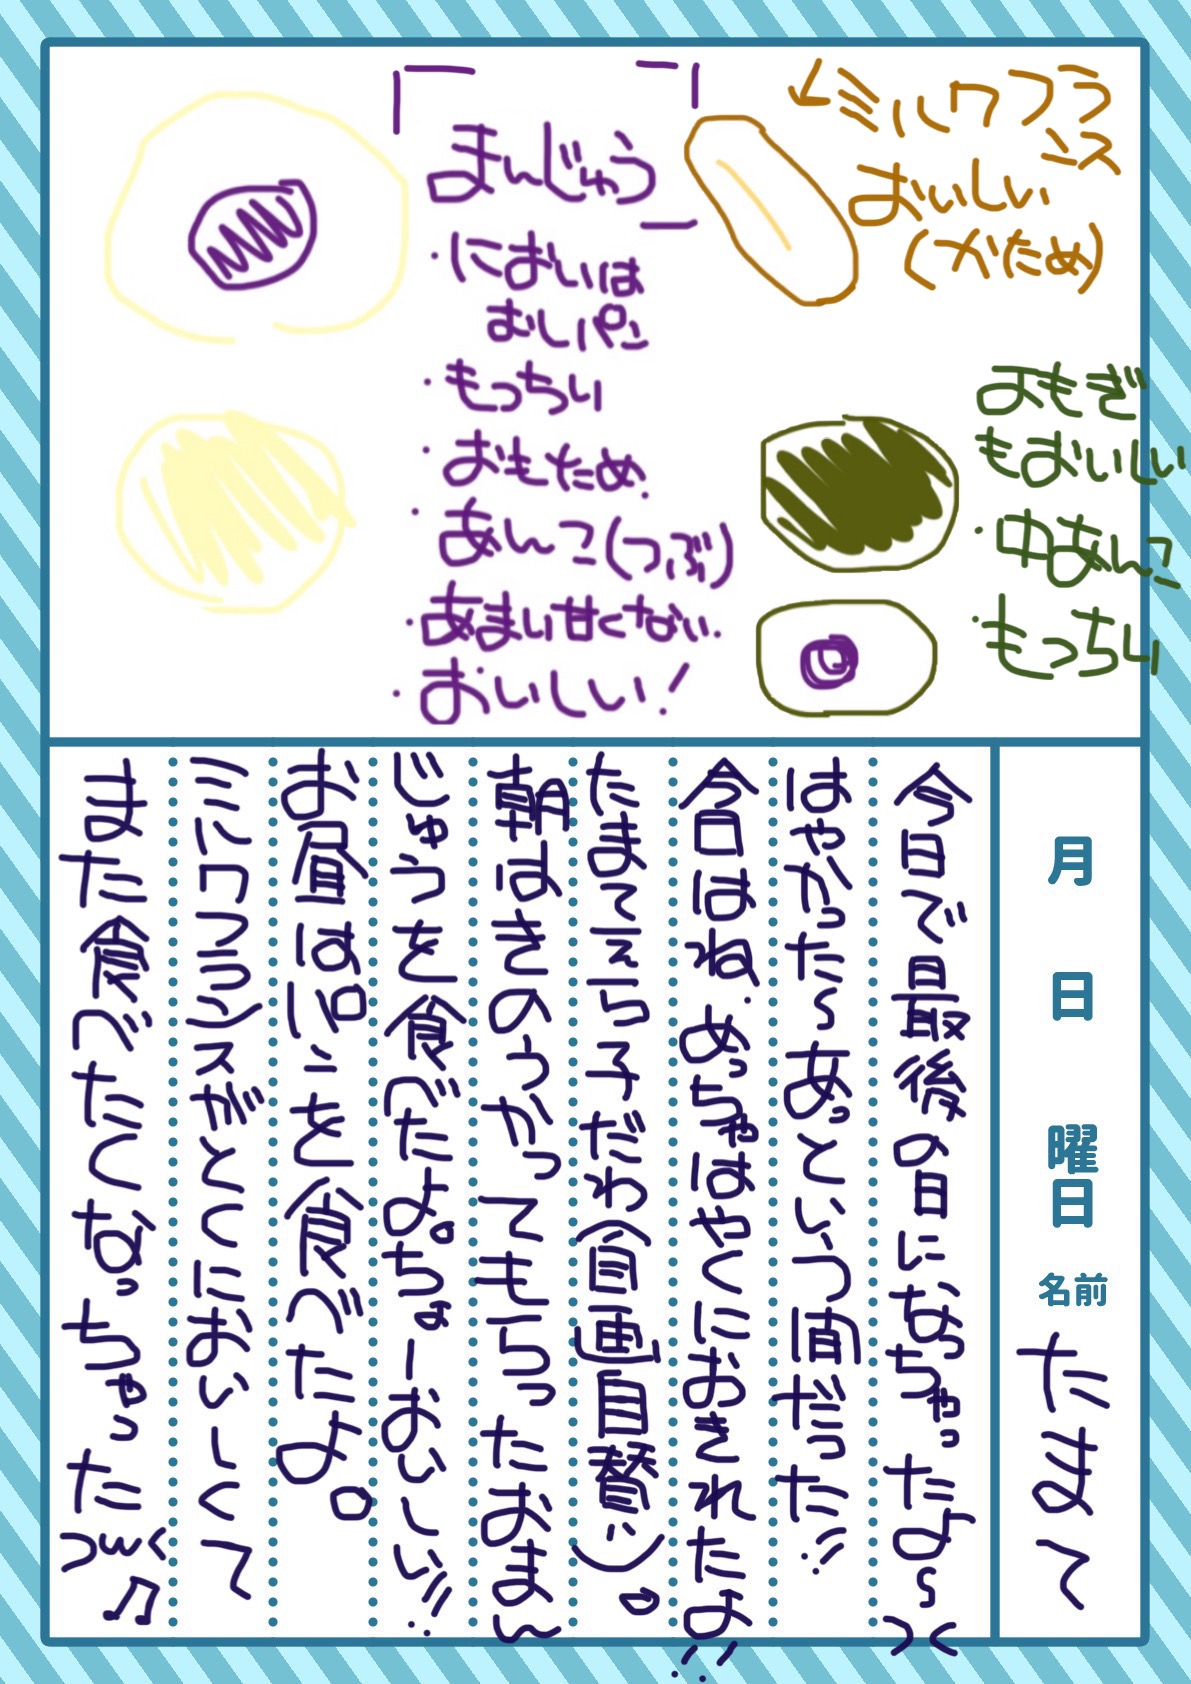 ↙ミルクフランス
おいしい
(かため)
「まんじゅう」
・においは
むしパン
・もっちり
・おもため.
・あんこ(つぶ)
・あまい甘くない.
・おいしい!
よもぎ
もおいしい
・中あんこ
・もっちり
月 日 曜日 名前 たまて
今日で最後の日になっちゃったよ〜
はやかった〜あっという間だった!!
今日はね、めっちゃはやくにおきれたよ!!
たまてえらい子だわ(自画自賛)。
朝はきのうかってもらったおまん
じゅうを食べたよ。ちょーおいしい!!
お昼はパンを食べたよ。
ミルクフランスがとくにおいしくて
また食べたくなっちゃった